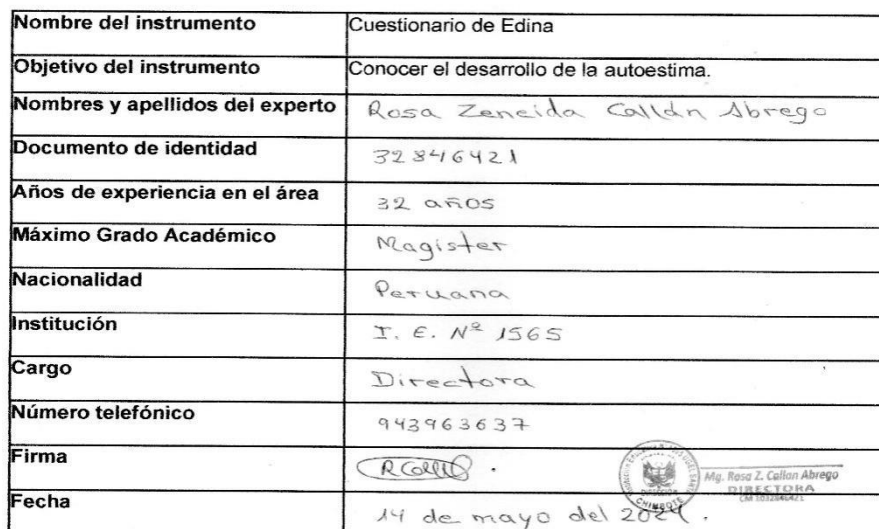 Nombre del instrumento Cuestionario de Edina
Objetivo del instrumento Conocer el desarrollo de la autoestima.
Nombres y apellidos del experto Rosa Zeneida Callán Abrego
Documento de identidad 32846421
Años de experiencia en el área 32 años
Máximo Grado Académico Magister
Nacionalidad Peruana
Institución I. E. Nº 1565
Cargo Directora
Número telefónico 943963637
Firma RCall
Mg. Rosa Z. Callan Abrego
DIRECTORA
CM 1032846421
CHIMBOTE
Fecha 14 de mayo del 2024.